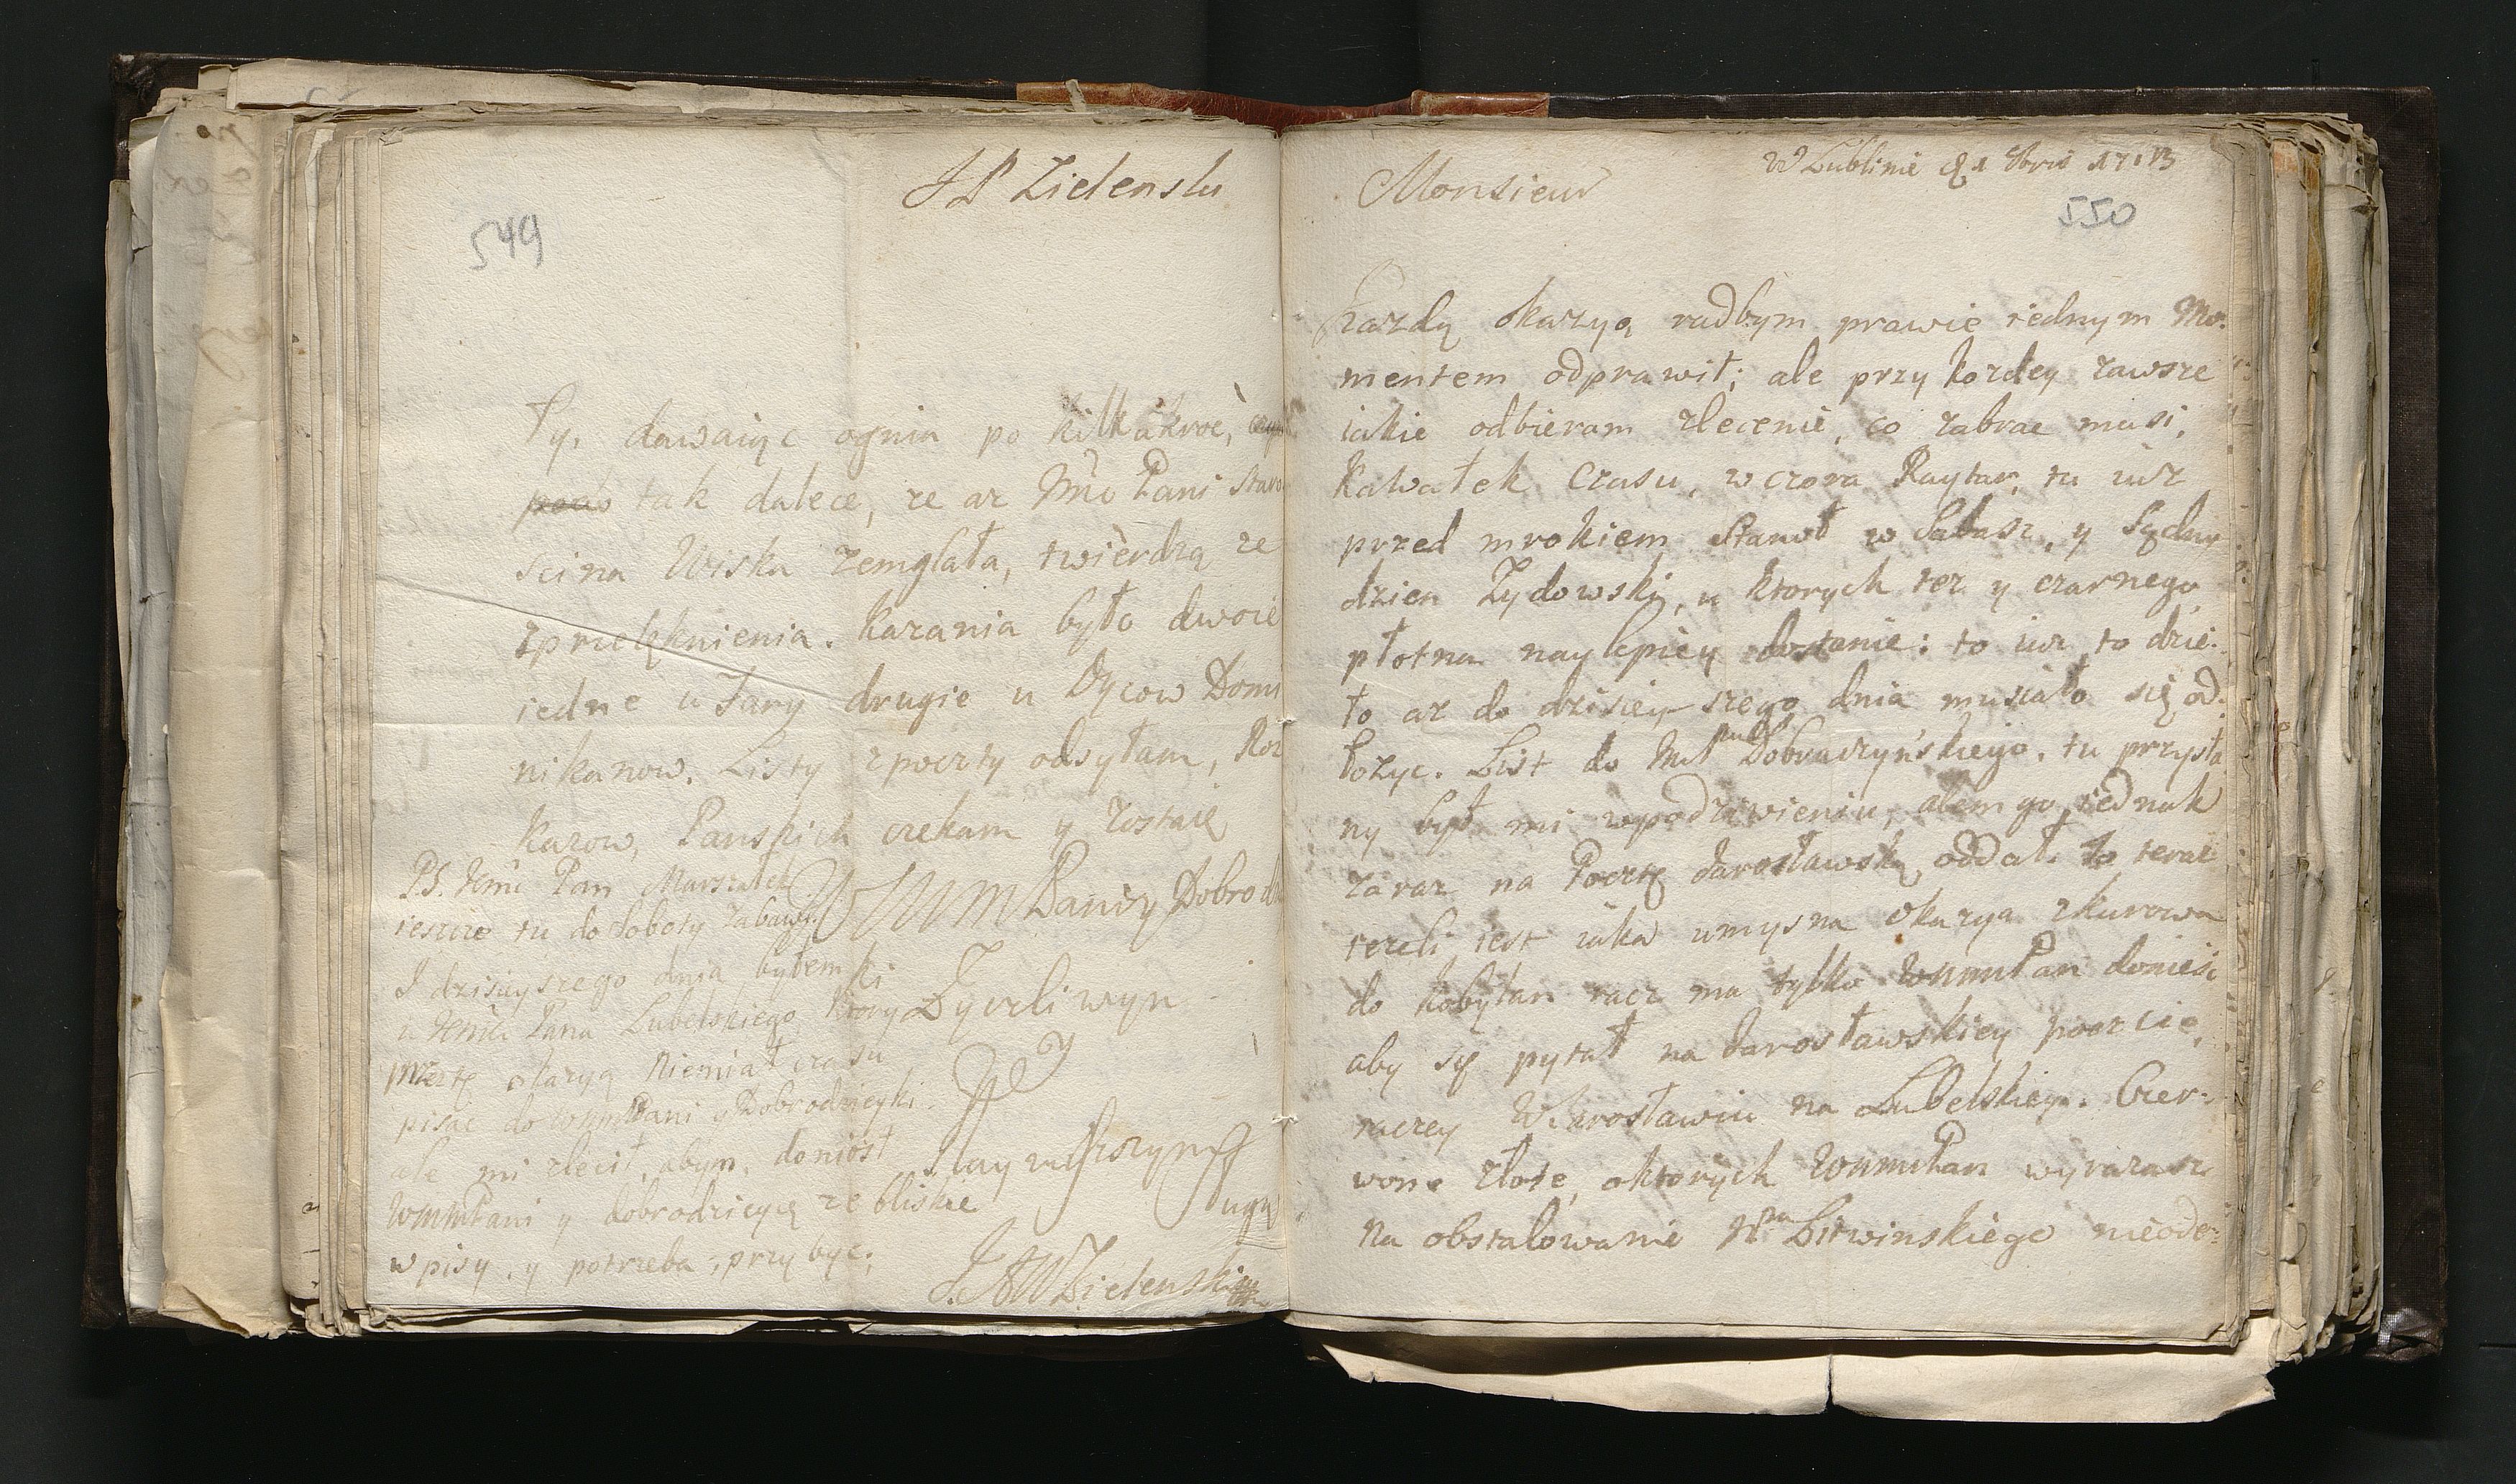 J P Zielenski
549
Ty, dawaiąc ognia po kilkakroć,
tak dalece, ze az Jmć Pani Staro
scina Wiska zemglała, twierdzą ze
zprzelęknienia. Kazania było dwoie
iedne u Fary drugie u Oycow Domi
nikanow. Listy zpoczty odsyłam, Roz
kazow, Panskich czekam y zostaię
WMM Pani y Dobrodz
Zyczliwym
y
nayniższym
sługą
J. A W Zielenski
PS. Jmć Pan Marszałek
ieszcze tu do Soboty zabawi.
I dzisieyszego dnia byłem
u Jmści Pana Lubelskiego ktory
przez tę okazyą niemiał czasu
pisac do WMMPani y Dobrodzieyki.
ale mi zlecił, abym, doniosł
WMMPani y dobrodzieycę ze bliskie
wpisy, y potrzeba, przybyc.
W Lublinie 1 8bris 1713
Monsieur
550
Kazdą okazyą radbym prawie iednym Mo-
mentem odprawił; ale przy kozdey zawsze
iakie odbieram zlecenie, co zabrac musi,
kawałek czasu, wczora Raytar, tu iuz
przed mrokiem stanoł w Sabasz, y Sądny
dzien Zydowski, u ktorych tez y czarnego
płotna naylepiey dostanie: to iuz to dzie-
ło az do dzisieyszego dnia musiało się od-
łozyc. List do Jmć Pana Dobraczyńskiego, tu przysła
ny był mi wpodziwieniu, alem go iednak
zaraz na Pocztę Jarosławską oddał. Jo teraz
iezeli iest iaka umysna okazya zkurowa
do Kobylan racz ma tylko WMMPan donieść
aby się pytał na Jarosławskiey poczcie,
raczey WJarosławiu na Lubelskiey. Czer-
wone złote, oktorych WMMPan wyrazasz
na obstalowanie Jpa Litwinskiego nieode-